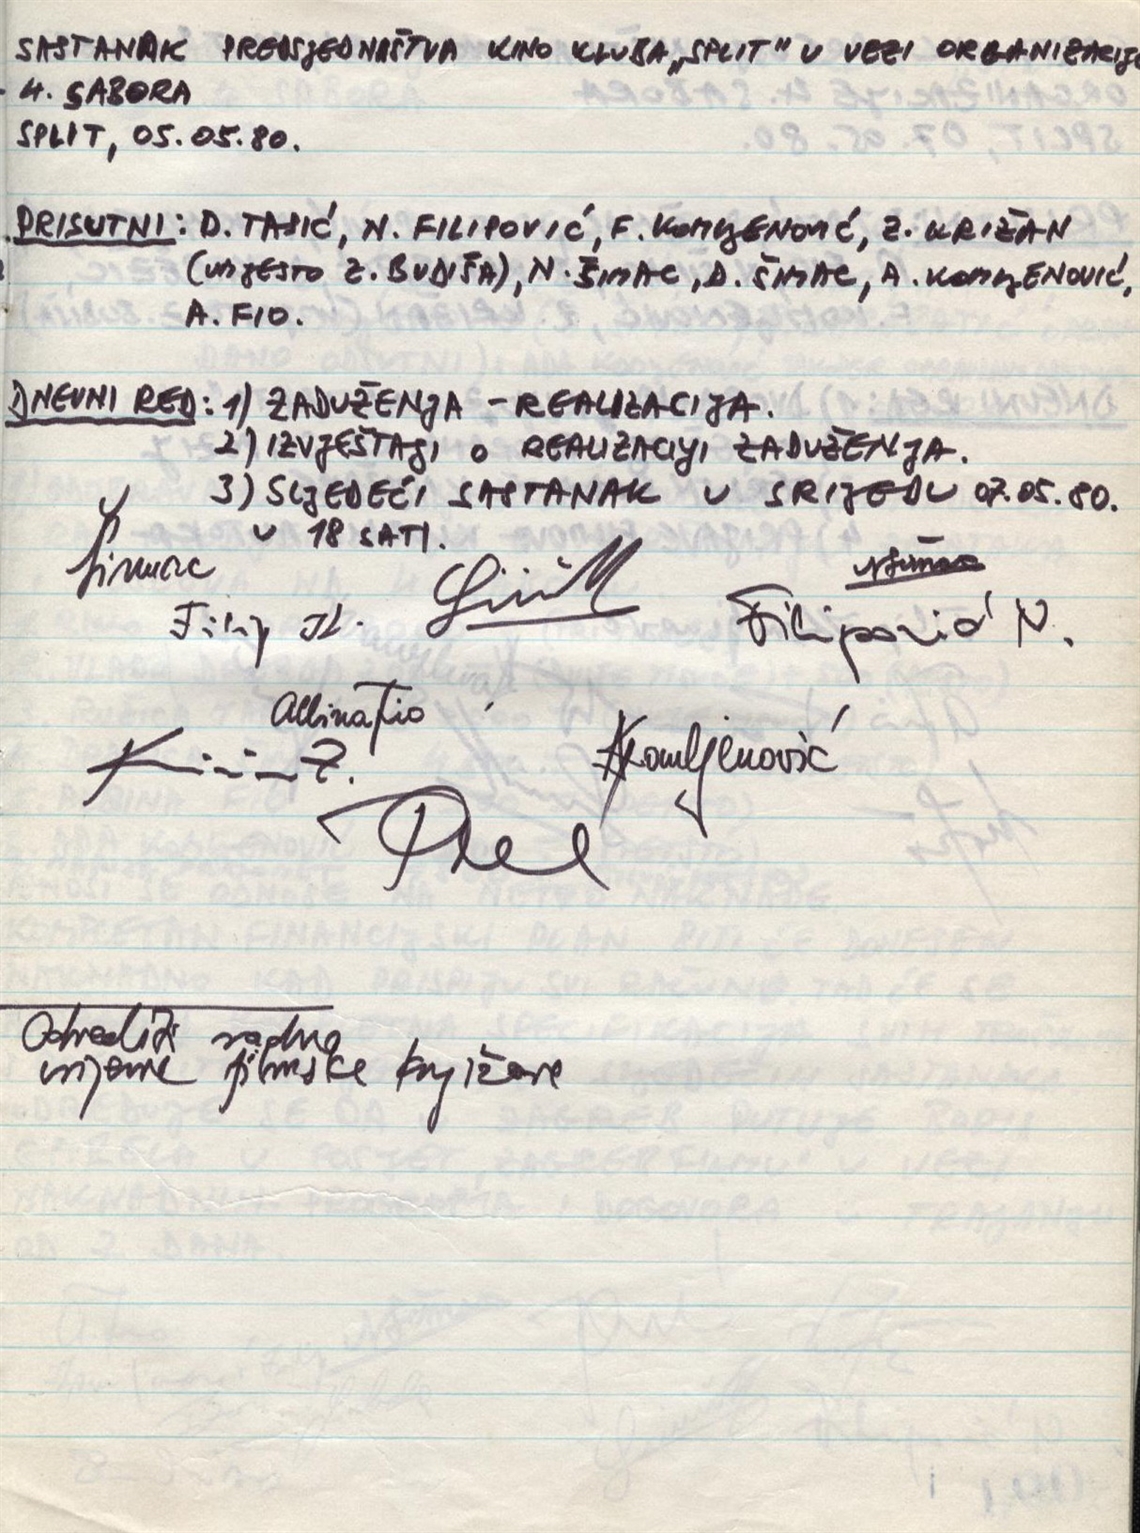 SASTANAK PREDSJEDNIŠTVA KINO KLUBA „SPLIT" U VEZI ORGANIZACIJE
4. SABORA
SPLIT, 05.05.80.
PRISUTNI: D. TASIĆ, N. FILIPOVIĆ, F. KOMLJENOVIĆ, Z. KRIŽAN
(UMJESTO Z. BUDIŠA), N. ŠIMAC, D. ŠIMAC, A. KOMLJENOVIĆ,
A. FIO.
DNEVNI RED: 1) ZADUŽENJA - REALIZACIJA.
2) IZVJEŠTAJI O REALIZACIJI ZADUŽENJA.
3) SLJEDEĆI SASTANAK U SRIJEDU 07.05.80.
U 18 SATI.
Šimac
Filipović N.
Albina Fio
AKomljenović
Odrediti radno
vrijeme filmske knjižare